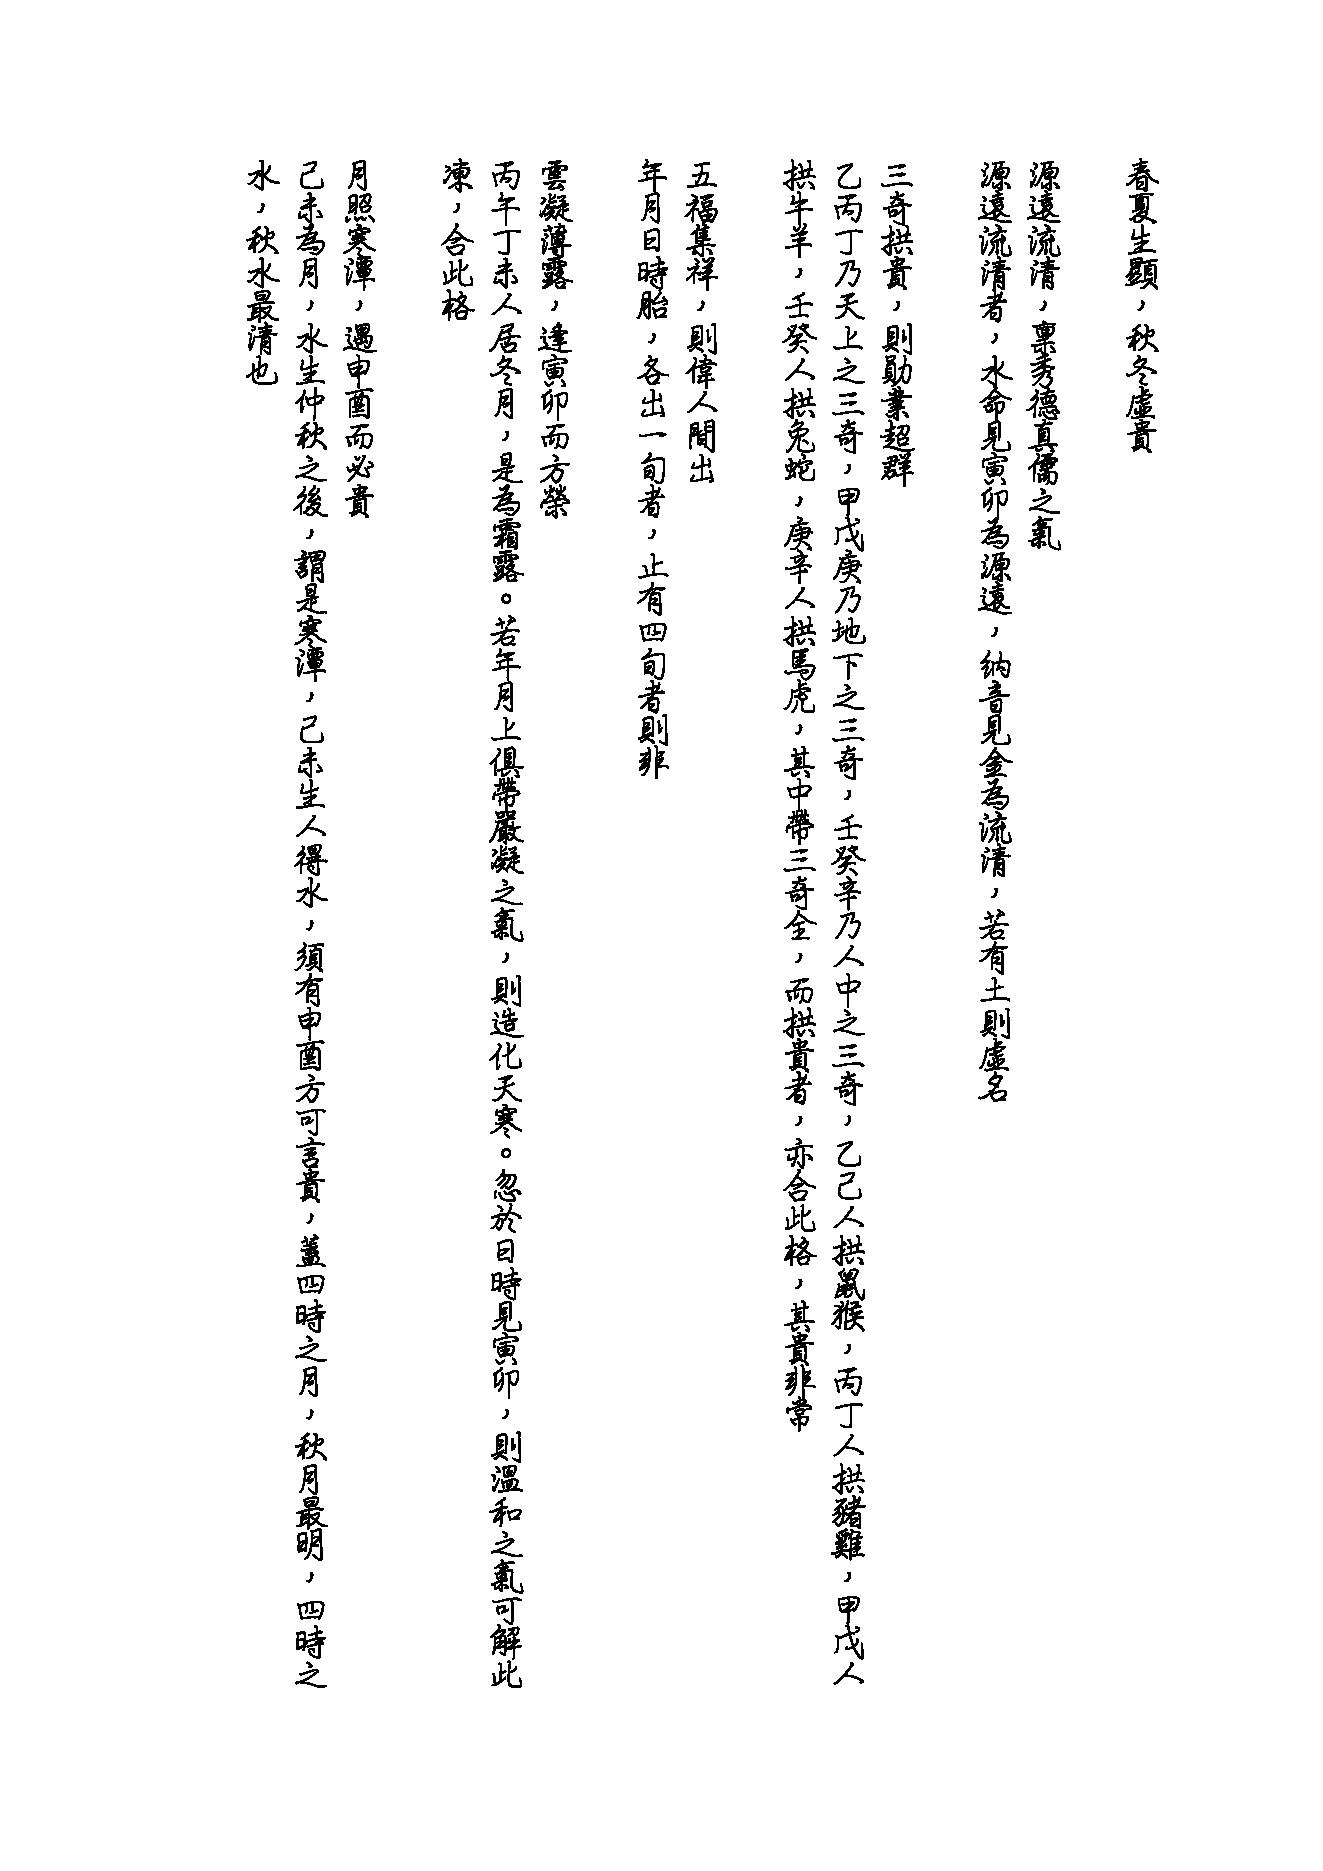 春夏生顯，秋冬虛貴
源遠流清，稟秀德真儒之氣
源遠流清者，水命見寅卯為源遠，納音見金為流清，若有土則虛名
三奇拱貴，則勛業超群
乙丙丁乃天上之三奇，甲戊庚乃地下之三奇，壬癸辛乃人中之三奇，乙己人拱鼠猴，丙丁人拱豬雞，甲戊人
拱牛羊，壬癸人拱兔蛇，庚辛人拱馬虎，其中帶三奇全，而拱貴者，亦合此格，其貴非常
五福集祥，則偉人間出
年月日時胎，各出一旬者，止有四旬者則非
雲凝薄露，逢寅卯而方榮
丙午丁未人居冬月，是為霜露。若年月上俱帶嚴凝之氣，則造化天寒。忽於日時見寅卯，則溫和之氣可解此
凍，合此格
月照寒潭，遇申酉而必貴
己未為月，水生仲秋之後，謂是寒潭，己未生人得水，須有申酉方可言貴，蓋四時之月，秋月最明，四時之
水，秋水最清也